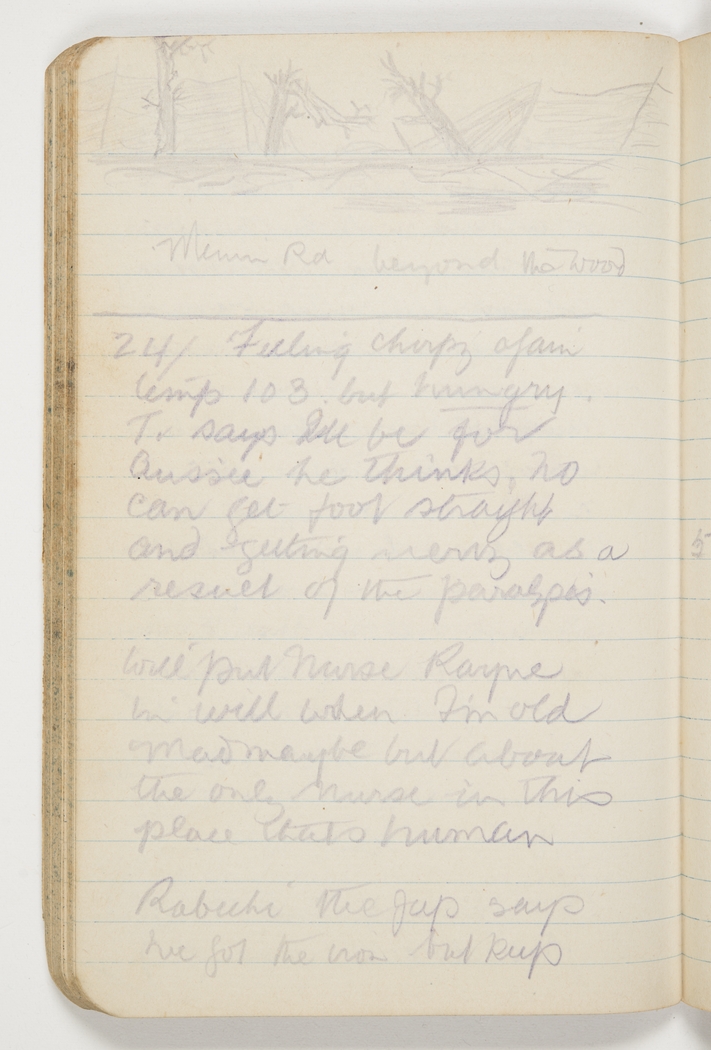 Menin Rd beyond the wood
24/ Feeling chirpy again
temp 103. but hungry.
Dr says I'll be for
Aussie he thinks, no
can get foot straight
and getting nervy as a
result of the paralysis.
Will put Nurse Rayne
in will when I'm old
mad maybe but about
the only nurse in this
place thats human
the Jap says
he got the iron but keep
5